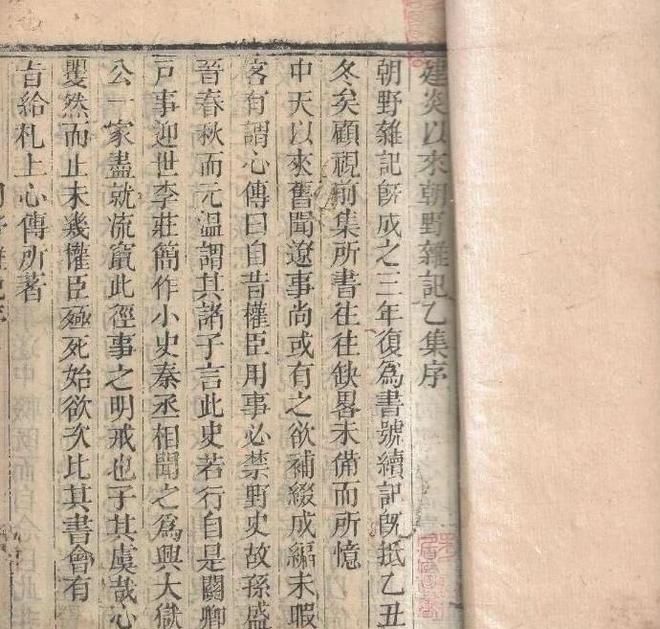 建炎以來朝野雜記乙集序
朝野雜記旣成之三年復爲書號續記旣抵乙丑
冬矣顧視前集所書往往缺畧未備而所憶
中天以來舊聞遼事尚或有之欲補綴成編未暇
客有謂心傳曰自昔權臣用事必禁野史故孫盛
晉春秋而元溫謂其諸子言此史若行自是關卿
戸事迎世李莊簡作小史秦丞相聞之爲興大獄
公一家盡就流竄此徑事之明戒也子其虞哉心
矍然而止未幾權臣殛死始欲次比其書會有
旨給札上心傳所著